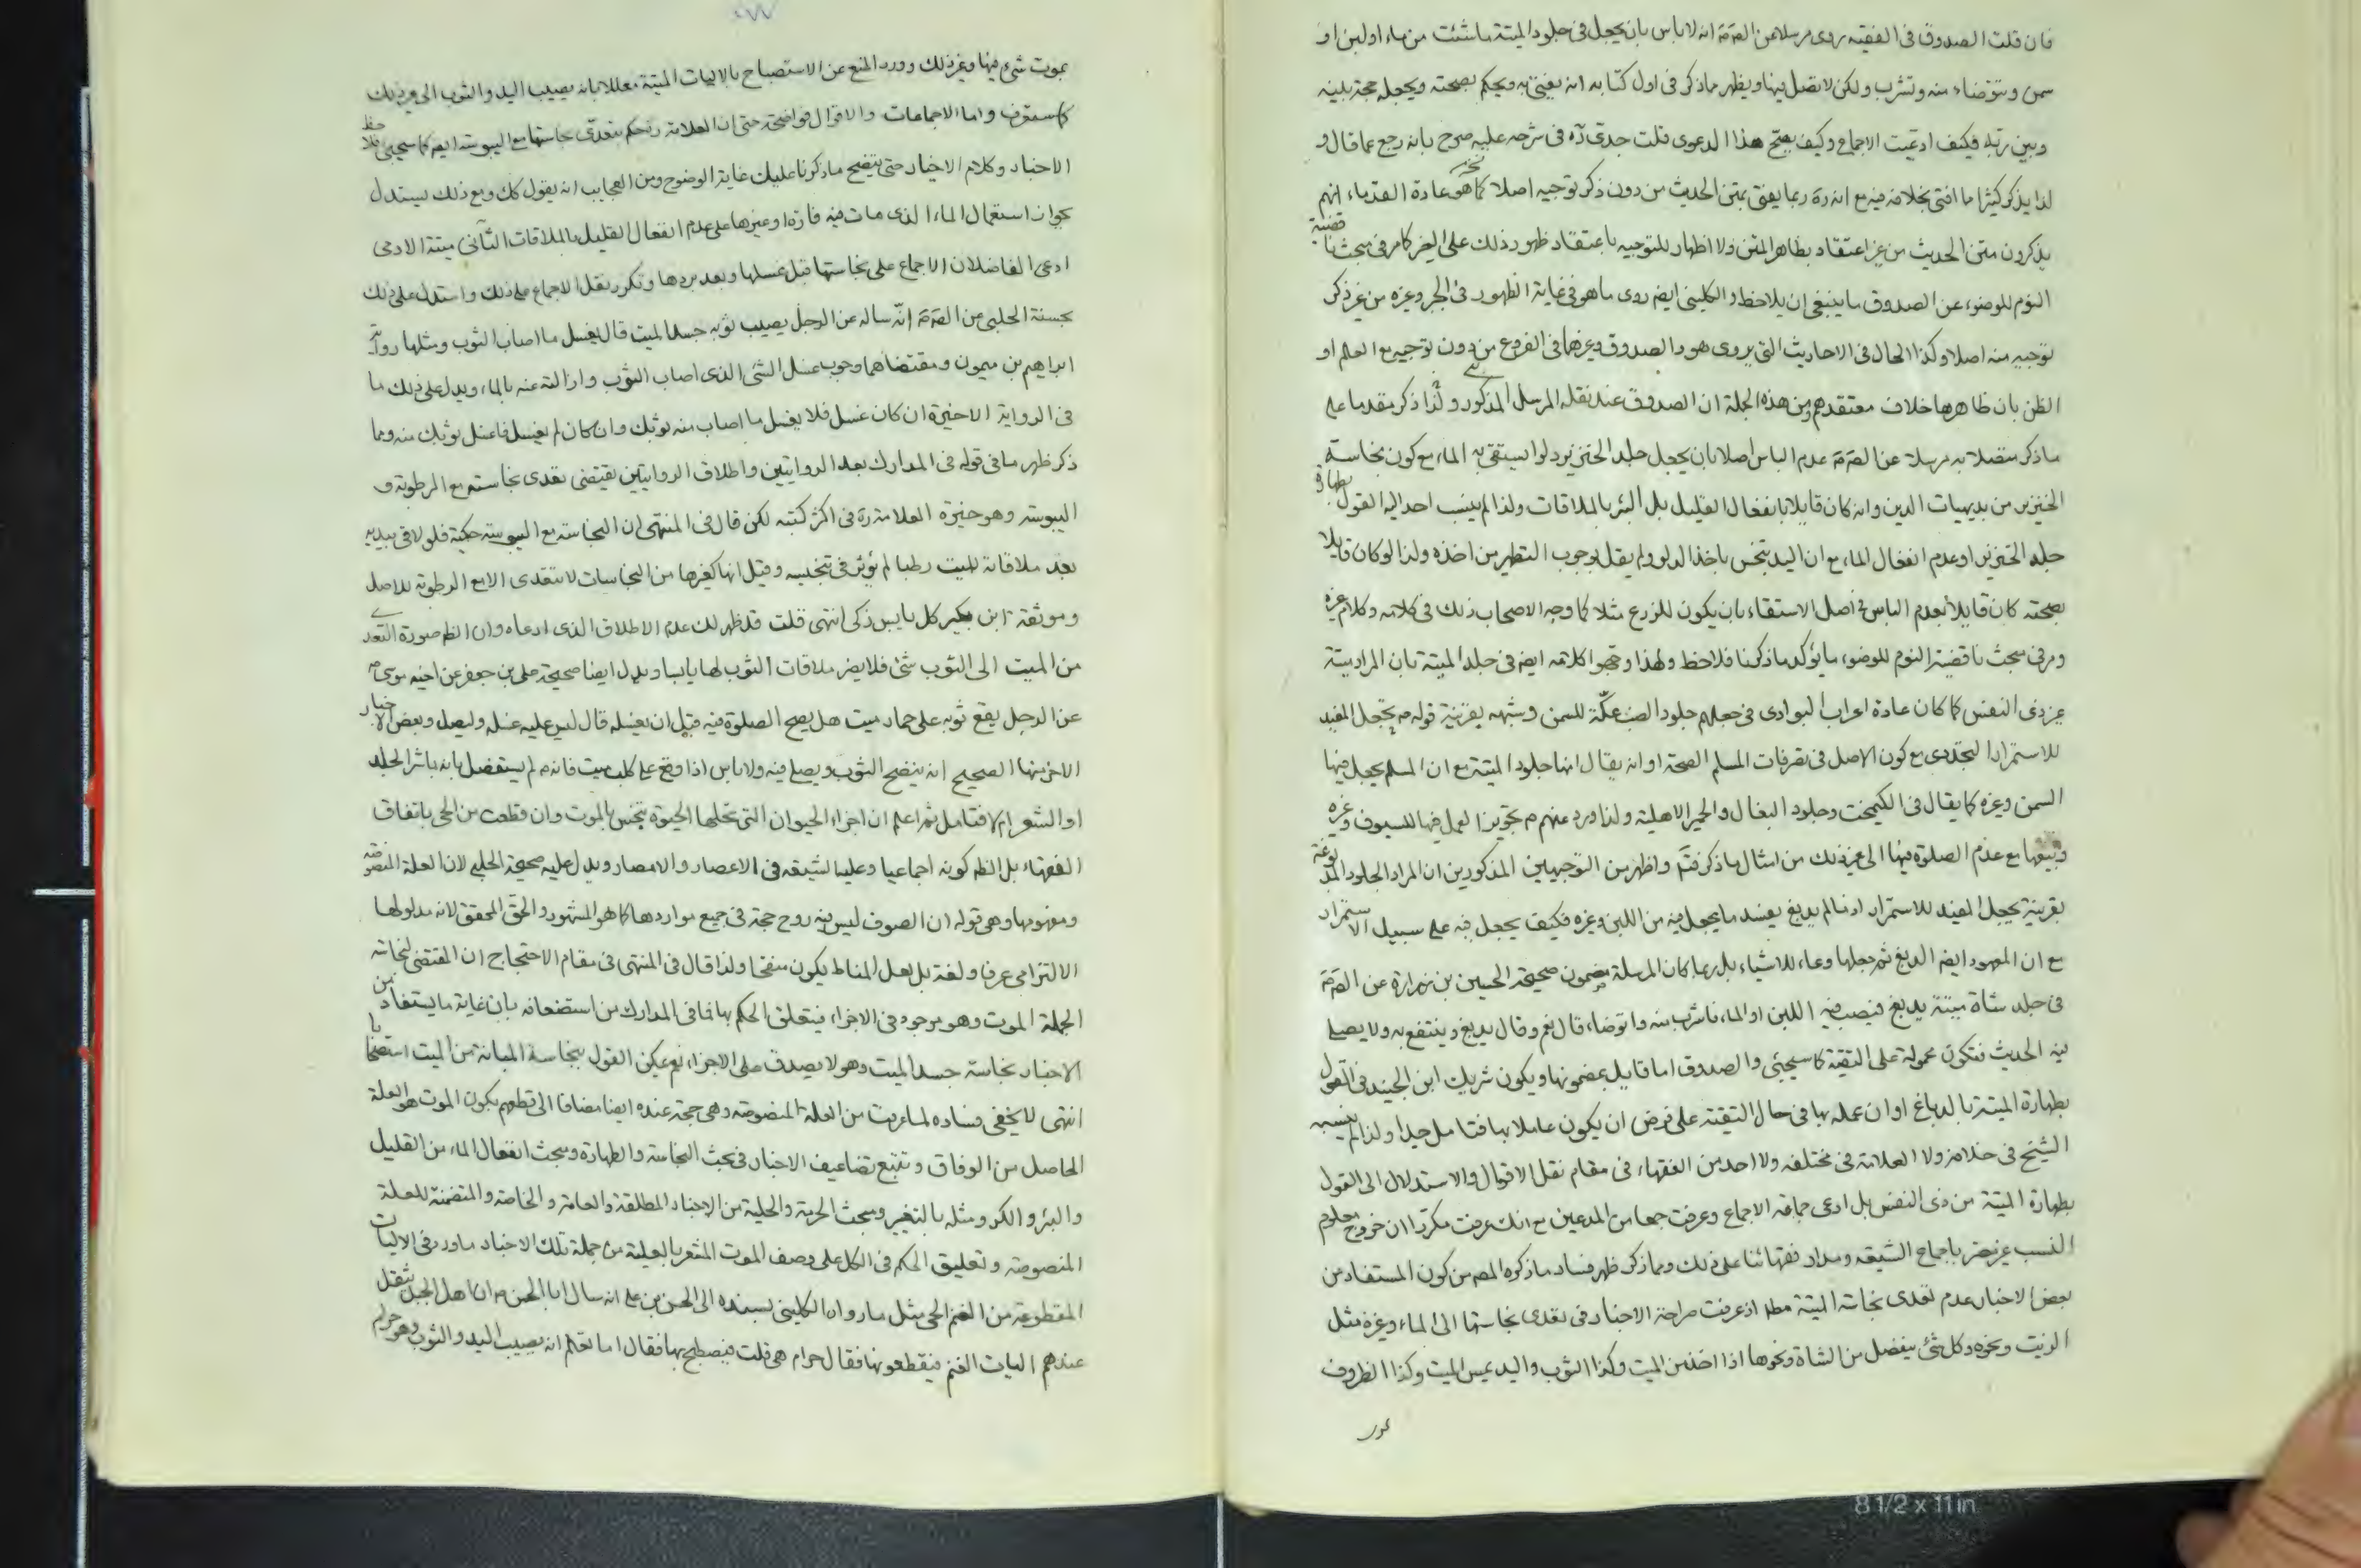 فان قلت الصدوق فى الفقيه روى مرسلا عن الصّٓ مٓ انه لا باس بان يجعل فى جلود الميتة ما شئت من ماء او لبن او
سمن و تتوضاء منه و تشرب و لكن لا تصل فيها و يظهر مما ذكر فى اول كتابه انه يفتى به و يحكم بصحته و يجعله حجة بينه
و بين ربّه فكيف ادعيت الاجماع و كيف يصح هذا الدعوى قلت جدّى رٓه فى شرحه عليه صرح بانه رجع عما قال و
لذا يذكر كثيرا ما افتى بخلافه فيه مع انه رٓه ربما يفتى بمتن الحديث من دون ذكر توجيه اصلا كما هو عادة القدماء انهم
يذكرون متن الحديث من غير اعتقاد بظاهر المتن و لا اظهار للتوجيه باعتقاد ظهور ذلك على الغير كما مر فى مبحث ناقضية
النوم للوضوء عن الصدوق ما ينبغى ان يلاحظ و الكلينى ايضا روى ما هو فى غاية الظهور فى الجبر و غيره من غير ذكر
توجيه منه اصلا و كذا الحال فى الاحاديث التى يروى هو و الصدوق و غيرهما فى الفروع من دون توجيه مع العلم او
الظن بان ظاهرها خلاف معتقدهم و من هذه الجملة ان الصدوق عند نقله المرسل المذكور و لذا ذكر مقدما على
ما ذكر متصلا به مرسلا عن الصّٓ مٓ عدم الباس اصلا بان يجعل جلد الخنزير دلوا يستقى به الماء مع كون نجاسة
الخنزير من بديهيات الدين و انه كان قايلا بانفعال القليل بل البئر بالملاقات و لذا لم ينسب احد اليه القول بطهارة
جلد الخنزير او عدم انفعال الماء مع ان اليد تنجس باخذ الدلو و لم يقل بوجوب التطهر من اخذه و لذا لو كان قايلا
بصحته كان قايلا بعدم الباس فى اصل الاستقاء بان يكون للزرع مثلا كما وجه الاصحاب ذلك فى كلامه و كلام غيره
و مر فى مبحث ناقضية النوم للوضوء ما يؤكد ما ذكرنا فلاحظ و لهذا وجهوا كلامه ايضا فى جلد الميتة بان المراد ميتة
غير ذى النفس كما كان عادة اعراب البوادى فى جعلهم جلود الضب عكّة للسمن و شبهه بقرينة قوله مٓ يجعل المفيد
للاستمرار التجددى مع كون الاصل فى تصرفات المسلم الصحة او انه يقال انها جلود الميتة مع ان المسلم يجعل فيها
السمن و غيره كما يقال فى الكيمخت و جلود البغال و الحمير الاهلية و لذا ورد عنهم مٓ تجويز العمل فيها للسيوف و غيره
و بيعها مع عدم الصلوة فيها الى غير ذلك من امثال ما ذكر فتّه و اظهر من التوجيهين المذكورين ان المراد الجلود المدبوغة
بقرينة يجعل المفيد للاستمرار اذ ما لم يدبغ يفسد ما يجعل فيه من اللبن و غيره فكيف يجعل فيه على سبيل الاستمرار
مع ان المعهود ايضا الدبغ ثم جعلها وعاء للاشياء بل ربما كان المرسلة مضمون صحيحة الحسين بن زرارة عن الصّٓ مٓ
فى جلد شاة ميتة يدبغ فيصب فيه اللبن او الماء فاشرب منه و اتوضاء قال نعم و قال يدبغ و ينتفع به و لا يصلى
فيه الحديث فتكون محمولة على التقية كما سيجئ و الصدوق اما قايل بمضمونها و يكون شريك ابن الجنيد فى القول
بطهارة الميتة بالدباغ او ان عمله بها فى حال التقية على فرض ان يكون عاملا بها فتامل جيدا و لذا لم ينسبه
الشيخ فى خلافه و لا العلامة فى مختلفه و لا احد من الفقهاء فى مقام نقل الاقوال و الاستدلال الى القول
بطهارة الميتة من ذى النفس بل ادعى جماعة الاجماع و عرفت جمعا من المدعين مع انك عرفت مكررا ان خروج معلوم
النسب غير مضر باجماع الشيعة و مدار فقهائنا على ذلك و مما ذكر ظهر فساد ما ذكره المصٓ من كون المستفاد من
بعض الاخبار عدم تعدى نجاسة الميتة مطٓ اذ عرفت صراحة الاخبار فى تعدى نجاستها الى الماء و غيره مثل
الزيت و نحوه و كل شئ ينفصل من الشاة و نحوها اذا اخذ من الميت و كذا الثوب و اليد يمس الميت و كذا الظروف
يموت شئ فيها و غير ذلك و ورد المنع عن الاستصباح بالاليات الميتة معللا بانه يصيب اليد و الثوب الى غير ذلك
كما ستعرف و اما الاجماعات و الاقوال فواضحة حتى ان العلامة رٓه حكم بتعدّى نجاستها مع اليبوسة ايضا كما سيجئ فلاحظ
الاخبار و كلام الاخيار حتى يتضح ما ذكرنا عليك غاية الوضوح و من العجايب انه يقول كك و مع ذلك يستدل
بجواز استعمال الماء الذى مات فيه فارة او غيرها على عدم انفعال القليل بالملاقات الثانى ميتة الادمى
ادعى الفاضلان الاجماع على نجاستها قبل غسلها و بعد بردها و تكرر نقل الاجماع على ذلك و استدل على ذلك
بحسنة الحلبى عن الصّٓ مٓ انّه ساله عن الرجل يصيب ثوبه جسد الميت قال يغسل ما اصاب الثوب و مثلها رواية
ابراهيم بن ميمون و مقتضاهما وجوب غسل الشئ الذى اصاب الثوب و ازالته عنه بالماء و يدل على ذلك ما
فى الرواية الاخيرة ان كان غسل فلا يغسل ما اصاب منه ثوبك و ان كان لم يغسل فاغسل ثوبك منه و مما
ذكر ظهر ما فى قوله فى المدارك بعد الروايتين و اطلاق الروايتين يقتضى تعدى نجاسته مع الرطوبة و
اليبوسة و هو خيرة العلامة رٓه فى اكثر كتبه لكن قال فى المنتهى ان النجاسة مع اليبوسة حكمية فلو لاقى ببدنه
بعد ملاقاته للميت رطبا لم يؤثر فى تنجيسه و قيل انها كغيرها من النجاسات لا تتعدى الا مع الرطوبة للاصل
و موثقة ابن بكير كل يابس ذكى انتهى قلت قد ظهر لك عدم الاطلاق الذى ادعاه و ان الظٓ صورة التعدى
من الميت الى الثوب شئ فلا يضر ملاقات الثوب لها يابسا و يدل ايضا صحيحة على بن جعفر عن اخيه موسى مٓ
عن الرجل يقع ثوبه على حمار ميت هل يصح الصلوة فيه قبل ان يغسله قال ليس عليه غسله و ليصل و بعض الاخبار
الاخر منها الصحيح انه ينضح الثوب و يصلى فيه و لا باس اذا وقع على كلب ميت فانه مٓ لم يستفصل بانه باشر الجلد
او الشعر ام لا فتامل ثم اعلم ان اجزاء الحيوان التى تحلها الحيوة ينجس بالموت و ان قطعت من الحى باتفاق
الفقهاء بل الظٓ كونه اجماعيا و عليه الشيعة فى الاعصار و الامصار و يدل عليه صحيحة الحلبى لان العلة المنصوصة
و مفهومها و هى قوله ان الصوف ليس فيه روح حجة فى جميع مواردها كما هو المشهور و الحق المحقق لانه مدلولها
الالتزامى عرفا و لغة بل لعل المناط يكون منقحا و لذا قال فى المنتهى فى مقام الاحتجاج ان المقتضى لنجاسة
الجملة الموت و هو موجود فى الاجزاء فيتعلق الحكم بها فما فى المدارك من استضعافه بان غاية ما يستفاد من
الاخبار نجاسة جسد الميت و هو لا يصدق على الاجزاء نعم يمكن القول بنجاسة المبانة من الميت استصحابا
انتهى لا يخفى فساده لما عرفت من العلة المنصوصة و هى حجة عنده ايضا مضافا الى قطعهم بكون الموت هو العلة
الحاصل من الوفاق و تتبع تضاعيف الاخبار فى بحث النجاسة و الطهارة و مبحث انفعال الماء من القليل
و البئر و الكر و مثله بالتغيير و مبحث الحرمة و الحلية من الاخبار المطلقة و العامة و الخاصة و المتضمنة للعلة
المنصوصة و تعليق الحكم فى الكل على وصف الموت المشعر بالعلية من جملة تلك الاخبار ما ورد فى الاليات
المقطوعة من الغنم الحى مثل ما رواه الكلينى بسنده الى الحسن بن على انه سال ابا الحسن مٓ ان اهل الجبل تثقل
عندهم اليات الغنم فيقطعونها فقال حرام هى قلت فيصطبح بها فقال اما تعلم انه يصيب اليد و الثوب و هو حرام